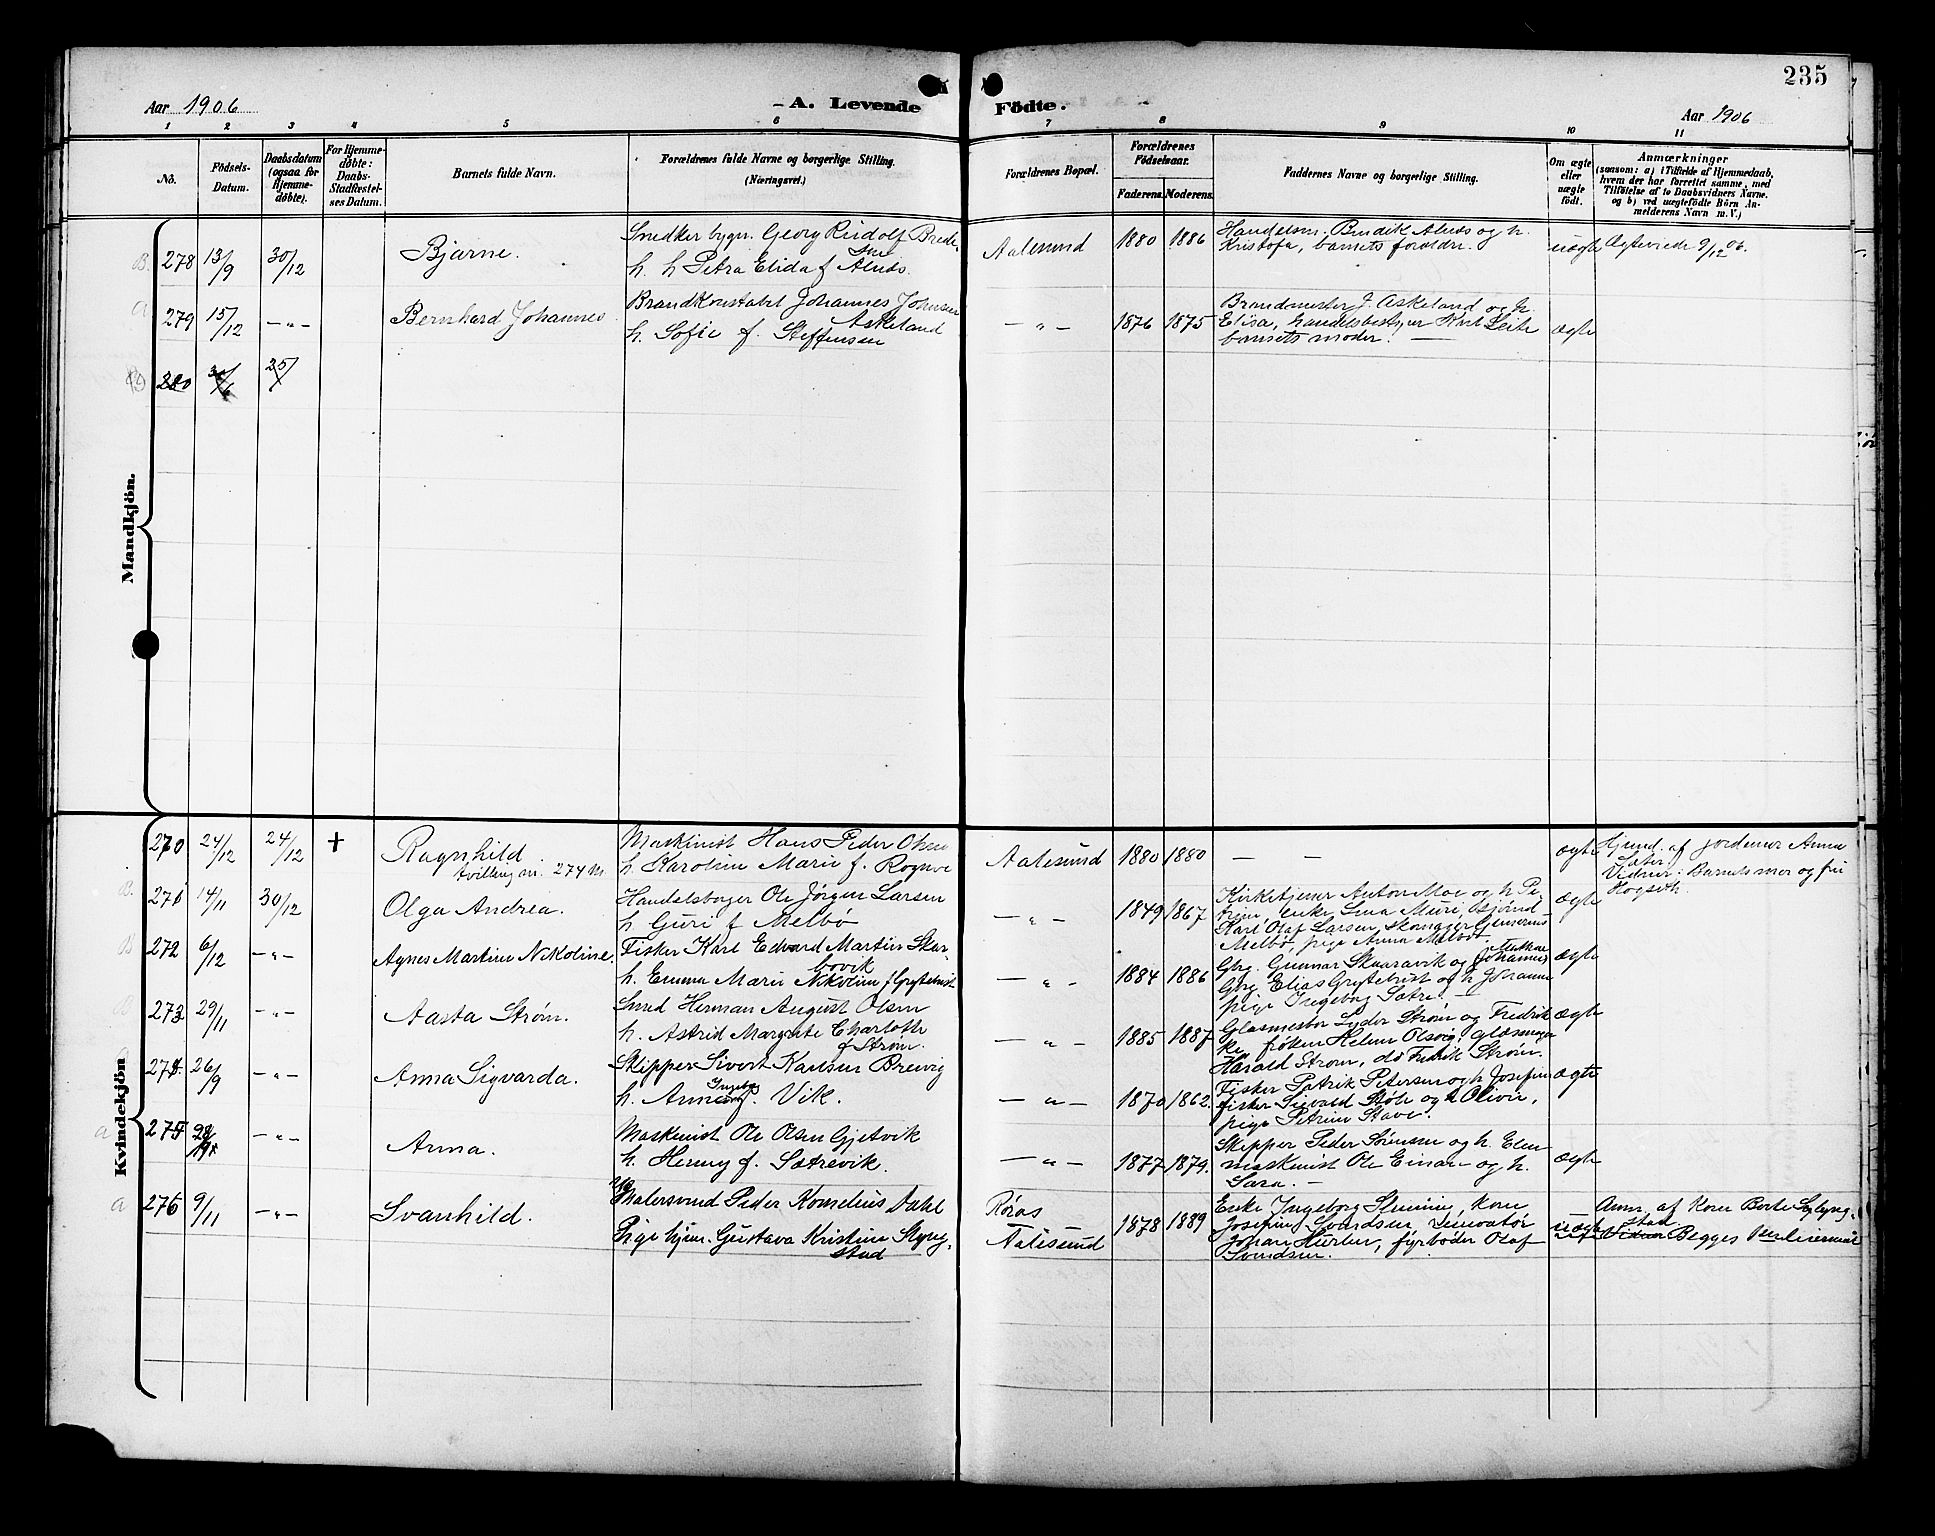 235
Aar 1906
A. Levende
Födte.
Aar 1906
1 2 3 4 5 6 7 8 9 10 11
No.
Födsels-
Datum.
Daabsdatum
(ogsaa for
Hjemme-
döbte).
For Hjemme-
döbte:
Daabs-
Stadfæstel-
ses Datum.
Barnets fulde Navn.
Forældrenes fulde Navne og borgerlige Stilling.
(Næringsvei.)
Forældrenes Bopæl.
Forældrenes
Födselsaar.
Faderens. Moderens.
Faddernes Navne og borgerlige Stilling.
Om ægte
eller
uægte
födt.
Anmærkninger
(saasom: a) i Tilfælde af Hjemmedaab,
hvem der har forrettet samme, med
Tilföielse af to Daabsvidners Navne.
og b) ved uægtefödte Börn An-
melderens Navn m. V.)
Mandkjön.
B. 278 13/9 30/12
Bjarne.
Snedker bygn. Georg Rudolf Brede,
h. h Petra Elida f Alnes.
Aalesund
1880 1886
Handelsm. Bendik Alnes og h.
Kristofa, barnets forældre.
uægte
Ægteviede 9/12 06.
a 279 15/12 — " —
Bernhard Johannes
Brandkonstabel Johannes Johnsen
Askeland
h. Sofie f. Steffensen
— " —
1876 1875
Brandmester J. Askeland og h.
Elisa, handelsbestyrer Knut Leite
barnets moder. —
ægte
280
Kvindekjön
270 24/12 24/12 +
Ragnhild
tvilling m. 274 M.
Maskinist Hans Peder Olsen
h. Karoline Marie f. Rogne
Aalesund
1880 1880
— —
ægte
Hjemd. af jordemor Anna
Sæter.
Vidner: Barnets mor og fru
B. 271 14/11 30/12
Olga Andrea.
Handelsborger Ole Jørgen Larsen
h Guri f Melbø
— " —
1849 1867
Kirketjener Anton Moe og h Pe-
trine, enke Lina Muri, Bjørnd
Karl Olaf Larsen, Skomager
Melbø, pige Anna Melbø.
ægte
B 272 6/12 — " —
Agnes Martine Nikoline.
Fisker Karl Edvard Martin Skar-
bøvik
h. Emma Marie Nikoline f Grytebust
— " —
1884 1886
Gbr. Gunnar Skaaravik og Johannes
Gbr Elias Grytebust og h Johanna
pige Ingeborg Sætre. —
ægte
B 273 29/11 — " —
Aasta Strøm.
Smed Herman August Olsen
h. Astrid Margrete Charlotte
f Strøm.
— " —
1885 1887
Glasmester Lyder Strøm og Fredrik-
ke, frøken Helene Olsvig, glasmester
Harald Strøm, do Fredrik Strøm.
ægte
274 26/9 — " —
Anna Sigvarda.
Skipper Sivert Karlsen Breivig
h. Anne f. Vik.
— " —
1870 1862.
Fisker Patrik Petersen og h Josefine
fisker Sigvald Støle og h Olivie,
pige Petrine Stave.
ægte
a 275 — " —
Anna.
Maskinist Ole Olsen Gjetvik
h. Henny f. Sætrevik.
— " —
1877 1879.
Skipper Peder Sørensen og h. Elen
maskinist Ole Einar og h.
Sara. —
ægte
a 276 9/11 — " —
Svanhild.
Malersvend Peder Kornelius Dahl
Pige hjem. Gustava Kristine Slyng-
stad
Røros
Aalesund
1878 1889
Enke Ingeborg Slemme, kone
Josefine Svendsen,
Johan fyrbøder Olaf
Svendsen.
uægte
Anm. af Kone Berte Slyng-
stad
Begges 1ste leiermaal